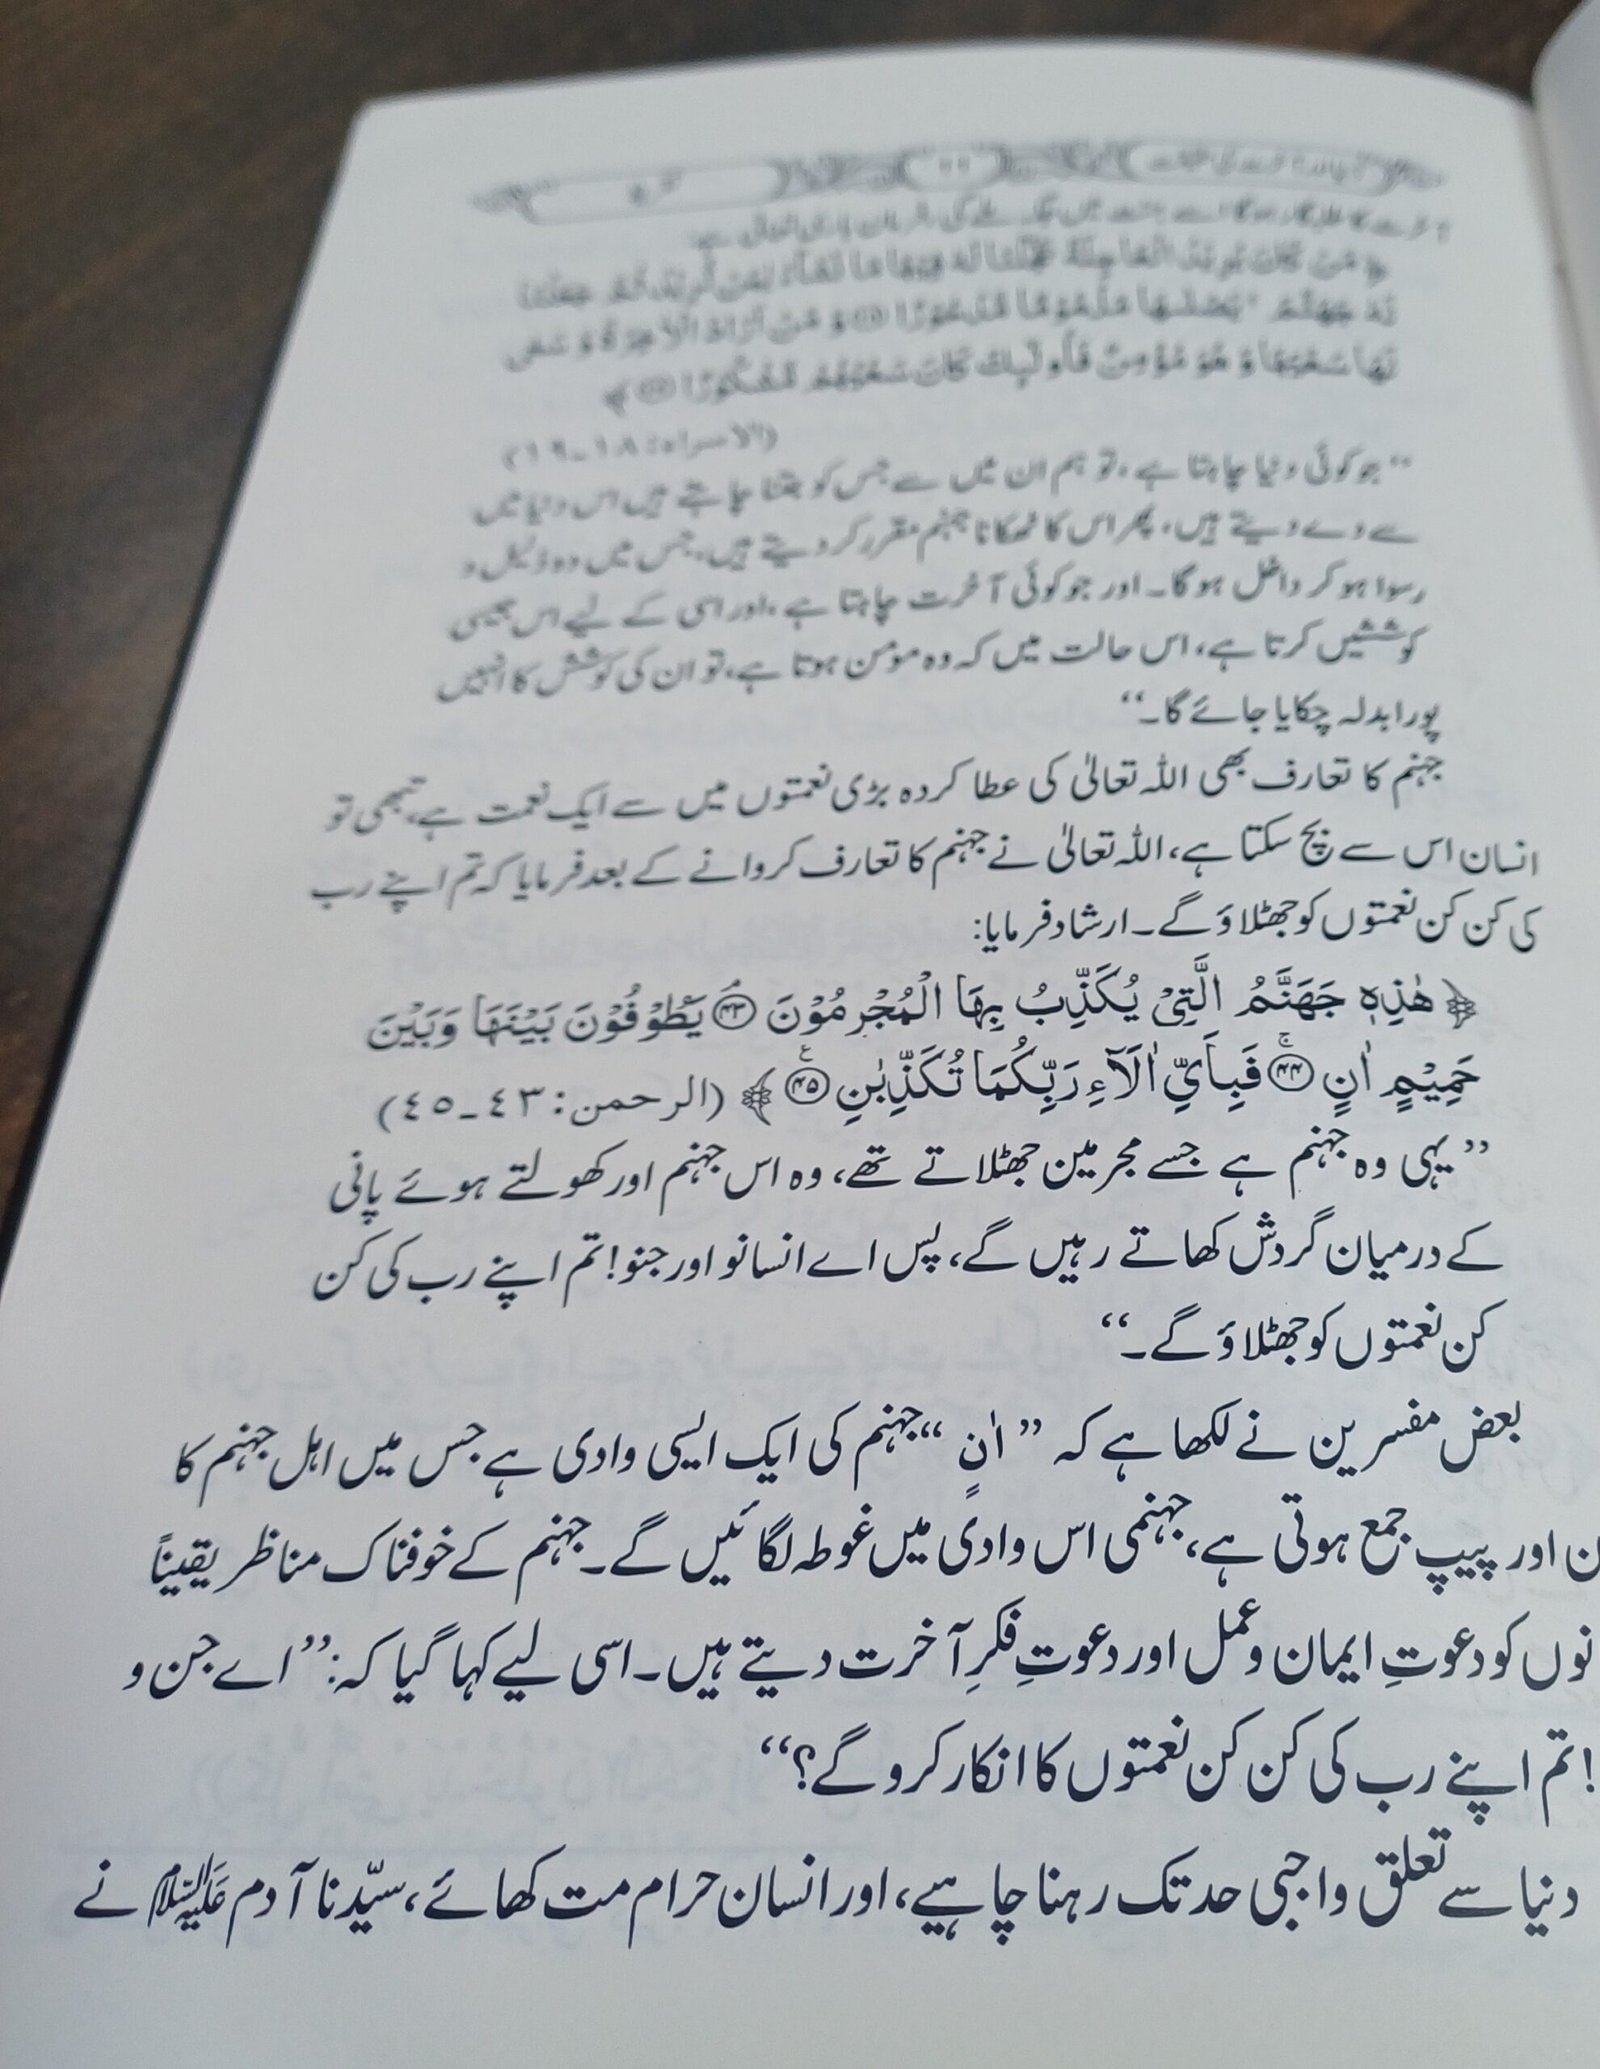 ﴿ مَنْ كَانَ يُرِيْدُ الْعَاجِلَةَ عَجَّلْنَا لَهٗ فِيْهَا مَا نَشَآءُ لِمَنْ نُّرِيْدُ ثُمَّ جَعَلْنَا
لَهٗ جَهَنَّمَ ۚ يَصْلٰىهَا مَذْمُوْمًا مَّدْحُوْرًا ۝۱۸ وَ مَنْ اَرَادَ الْاٰخِرَةَ وَ سَعٰى
لَهَا سَعْيَهَا وَ هُوَ مُؤْمِنٌ فَاُولٰٓىِٕكَ كَانَ سَعْيُهُمْ مَّشْكُوْرًا ۝۱۹ ﴾
(الاسراء: ١٨-١٩)
”جو کوئی دنیا چاہتا ہے، تو ہم ان میں سے جس کو جتنا چاہتے ہیں اس دنیا میں
سے دے دیتے ہیں، پھر اس کا ٹھکانا جہنم مقرر کر دیتے ہیں، جس میں وہ ذلیل و
رسوا ہو کر داخل ہوگا۔ اور جو کوئی آخرت چاہتا ہے، اور اسی کے لیے اس جیسی
کوششیں کرتا ہے، اس حالت میں کہ وہ مومن ہوتا ہے، تو ان کی کوشش کا انہیں
پورا بدلہ چکایا جائے گا۔“
جہنم کا تعارف بھی اللہ تعالیٰ کی عطا کردہ بڑی نعمتوں میں سے ایک نعمت ہے، تبھی تو
انسان اس سے بچ سکتا ہے، اللہ تعالیٰ نے جہنم کا تعارف کروانے کے بعد فرمایا کہ تم اپنے رب
کی کن کن نعمتوں کو جھٹلاؤ گے۔ ارشاد فرمایا:
﴿ هٰذِهٖ جَهَنَّمُ الَّتِيْ يُكَذِّبُ بِهَا الْمُجْرِمُوْنَ ۝۴۳ۘ يَطُوْفُوْنَ بَيْنَهَا وَبَيْنَ
حَمِيْمٍ اٰنٍ ۝۴۴ۚ فَبِاَيِّ اٰلَآءِ رَبِّكُمَا تُكَذِّبٰنِ ۝۴۵ۧ ﴾ (الرحمن: ٤٣-٤٥)
”یہی وہ جہنم ہے جسے مجرمین جھٹلاتے تھے، وہ اس جہنم اور کھولتے ہوئے پانی
کے درمیان گردش کھاتے رہیں گے، پس اے انسانو اور جنو! تم اپنے رب کی کن
کن نعمتوں کو جھٹلاؤ گے۔“
بعض مفسرین نے لکھا ہے کہ ”اٰنٍ“ جہنم کی ایک ایسی وادی ہے جس میں اہل جہنم کا
ن اور پیپ جمع ہوتی ہے، جہنمی اس وادی میں غوطہ لگائیں گے۔ جہنم کے خوفناک مناظر یقیناً
نوں کو دعوتِ ایمان و عمل اور دعوتِ فکرِ آخرت دیتے ہیں۔ اسی لیے کہا گیا کہ: ”اے جن و
! تم اپنے رب کی کن کن نعمتوں کا انکار کرو گے؟“
دنیا سے تعلق واجبی حد تک رہنا چاہیے، اور انسان حرام مت کھائے، سیّدنا آدم علیہ السلام نے